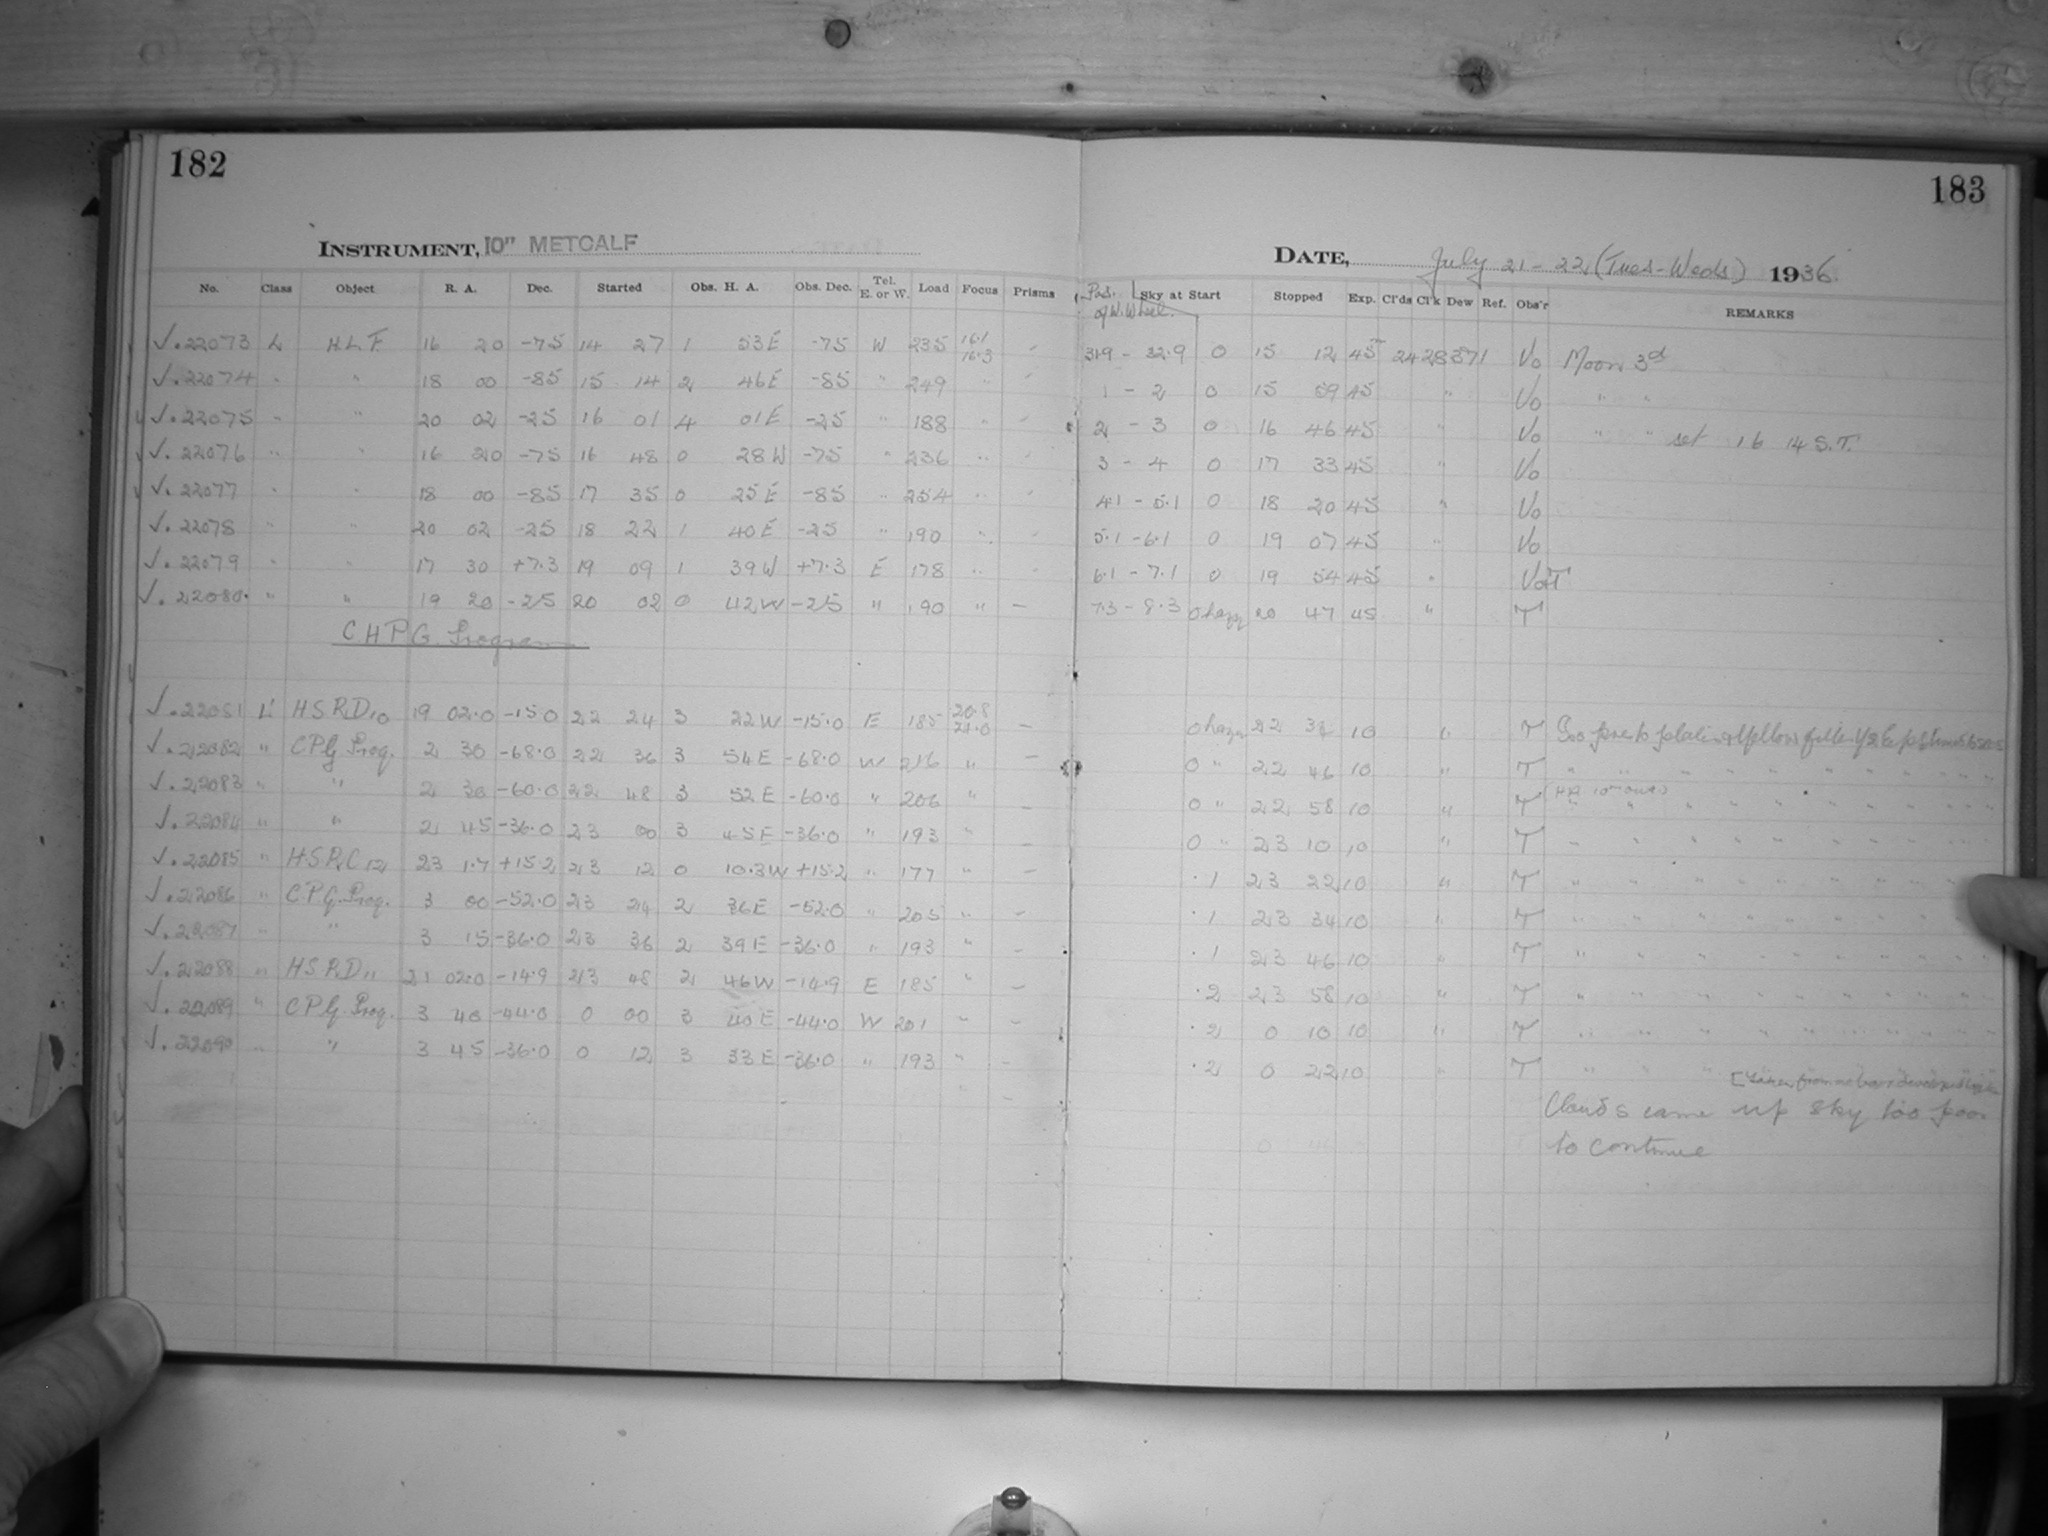 182
183
INSTRUMENT, 10" METCALF
DATE, July 21 - 22 (Tues - Weds) 1936
No. Class Object R. A. Dec. Started Obs. H. A. Obs. Dec. Tel. E. or W. Load Focus Prisms Pos. of W. Wheel. Sky at Start Stopped Exp. Cl'ds Cl'k Dew Ref. Obs'r REMARKS
√.22073 L H.L.F. 16 20 -75 14 27 1 53 E -75 W 235 16.1 16.3 - 31.9 - 32.9 0 15 12 45 Vo Moon 3d
√.22074 " " 18 00 -85 15 14 2 46 E -85 " 249 " - 1 - 2 0 15 59 45 " Vo " "
√.22075 " " 20 02 -25 16 01 4 01 E -25 " 188 " - 2 - 3 0 16 46 45 " Vo " " set 16 14 S.T.
√.22076 " " 16 20 -75 16 48 0 28 W -75 " 236 " - 3 - 4 0 17 33 45 " Vo
√.22077 " " 18 00 -85 17 35 0 25 E -85 " 254 " - 4.1 - 5.1 0 18 20 45 " Vo
√.22078 " " 20 02 -25 18 22 1 40 E -25 " 190 " - 5.1 - 6.1 0 19 07 45 " Vo
√.22079 " " 17 30 +7.3 19 09 1 39 W +7.3 E 178 " - 6.1 - 7.1 0 19 54 45 " Vo+T
√.22080 " " 19 20 -25 20 02 0 42 W -25 " 190 " - 7.3 - 8.3 0 hazy 20 47 45 " T
CHPG Program
√.22081 L' H.S.P.D10 19 02.0 -15.0 22 24 3 22 W -15.0 E 185 20.8 21.0 - 0 hazy 22 34 10 " T
√.22082 " CPG Prog. 2 30 -68.0 22 36 3 54 E -68.0 W 216 " - 0 " 22 46 10 " T " "
√.22083 " " 2 30 -60.0 22 48 3 52 E -60.0 " 206 " - 0 " 22 58 10 " T " "
√.22084 " " 2 45 -36.0 23 00 3 45 E -36.0 " 193 " - 0 " 23 10 10 " T " "
√.22085 " H.S.P.C12 23 1.7 +15.2 23 12 0 10.3 W +15.2 " 177 " - .1 23 22 10 " T " "
√.22086 " C.P.G. Prog. 3 00 -52.0 23 24 2 36 E -52.0 " 205 " - .1 23 34 10 " T " "
√.22087 " " 3 15 -36.0 23 36 2 39 E -36.0 " 193 " - .1 23 46 10 " T " "
√.22088 " H.S.P.D11 21 02.0 -14.9 23 48 2 46 W -14.9 E 185 " - .2 23 58 10 " T " "
√.22089 " CPG. Prog. 3 40 -44.0 0 00 3 40 E -44.0 W 201 " - .2 0 10 10 " T " "
√.22090 " " 3 45 -36.0 0 12 3 33 E -36.0 " 193 " - .2 0 22 10 " T " "
Clouds came up sky too poor
to continue